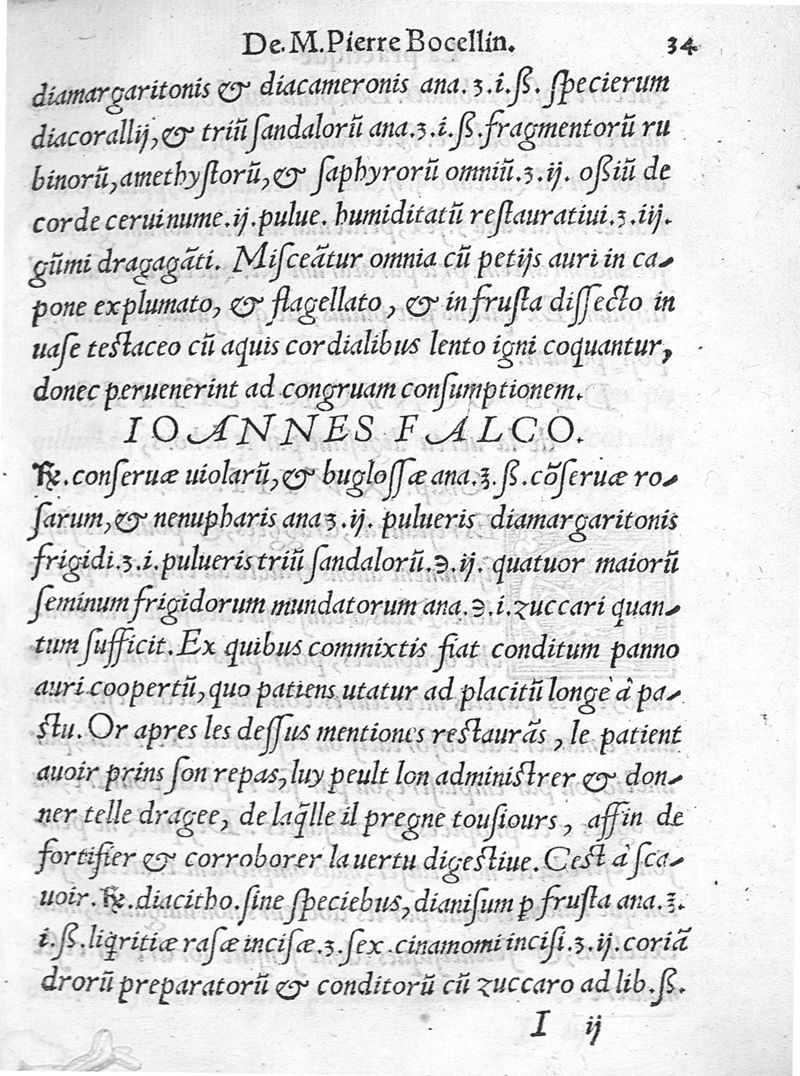 De. M. Pierre Bocellin. 34
diamargaritonis & diacameronis ana. ʒ.i.ß. ſpecierum
diacorallij, & triū ſandalorū ana. ʒ.i.ß. fragmentorū ru
binorū, amethyſtorū, & ſaphyrorū omniū. ʒ.ij. oßiū de
corde cerui nume .ij. pulue. humiditatū reſtauratiui. ʒ.iij.
gūmi dragagāti. Miſceātur omnia cū petijs auri in ca-
pone explumato, & flagellato, & in fruſta diſſecto in
uaſe teſtaceo cū aquis cordialibus lento igni coquantur,
donec peruenerint ad congruam conſumptionem.
IOANNES FALCO.
℞. conſeruæ uiolarū, & bugloſſæ ana. ℥.ß. cōſeruæ ro-
ſarum, & nenupharis ana ʒ.ij. pulueris diamargaritonis
frigidi. ʒ.i. pulueris triū ſandalorū. ℈.ij. quatuor maiorū
ſeminum frigidorum mundatorum ana. ℈.i. zuccari quan-
tum ſufficit. Ex quibus commixtis fiat conditum panno
auri coopertū, quo patiens utatur ad placitū longè à pa-
ſtu. Or apres les deſſus mentiones reſtaurās, le patient
auoir prins ſon repas, luy peult lon adminiſtrer & don-
ner telle dragee, de laq̄lle il pregne touſiours, affin de
fortifier & corroborer la uertu digeſtiue. Ceſt à ſca-
uoir. ℞. diacitho. ſine ſpeciebus, dianiſum p fruſta ana. ℥.
i.ß. liq̄ritiæ raſæ inciſæ. ʒ. ſex. cinamomi inciſi. ʒ.ij. coriā
drorū preparatorū & conditorū cū zuccaro ad lib. ß.
I ij